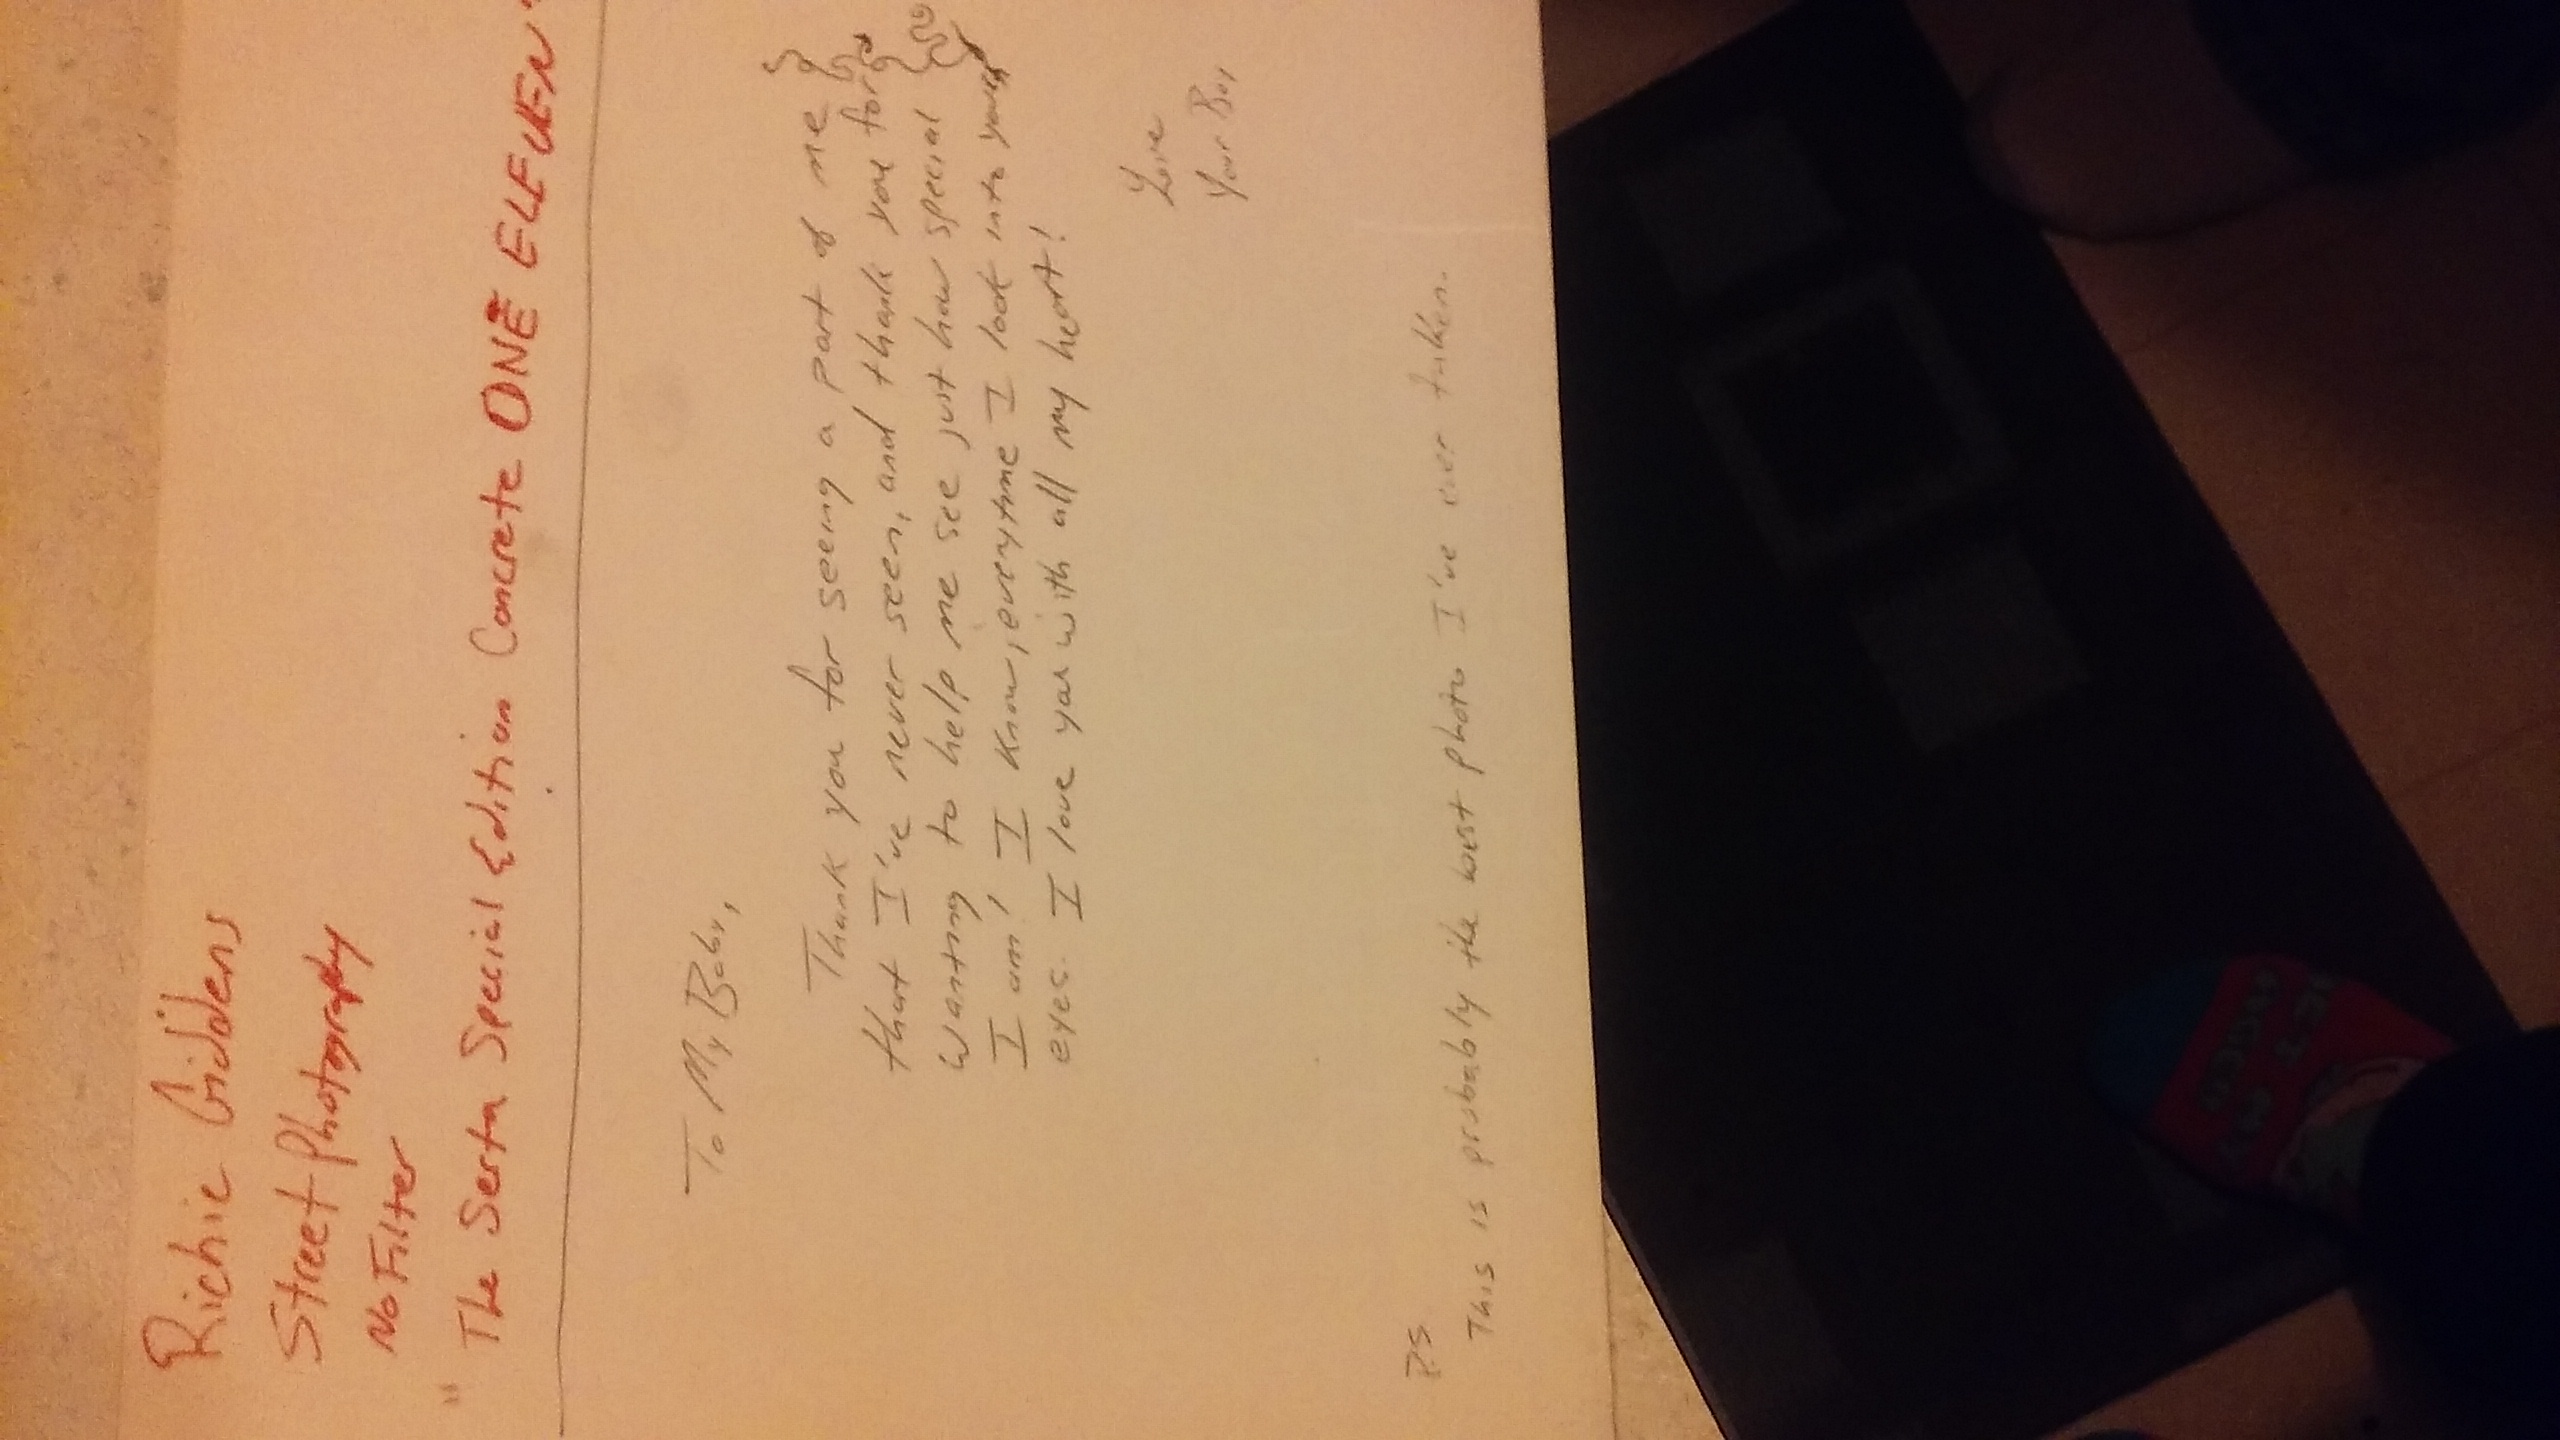 Richie Giddens
Street Photography
No Filter
"The Serta Special Edition Concrete ONE ELEVEN"
To My Baby,
Thank you for seeing a part of me
that I've never seen, and thank you for
wanting to help me see just how special
I am, I know, everytime I look into your
eyes. I love you with all my heart!
Love
Your Boy
P.S.
This is probably the worst photo I've ever taken.